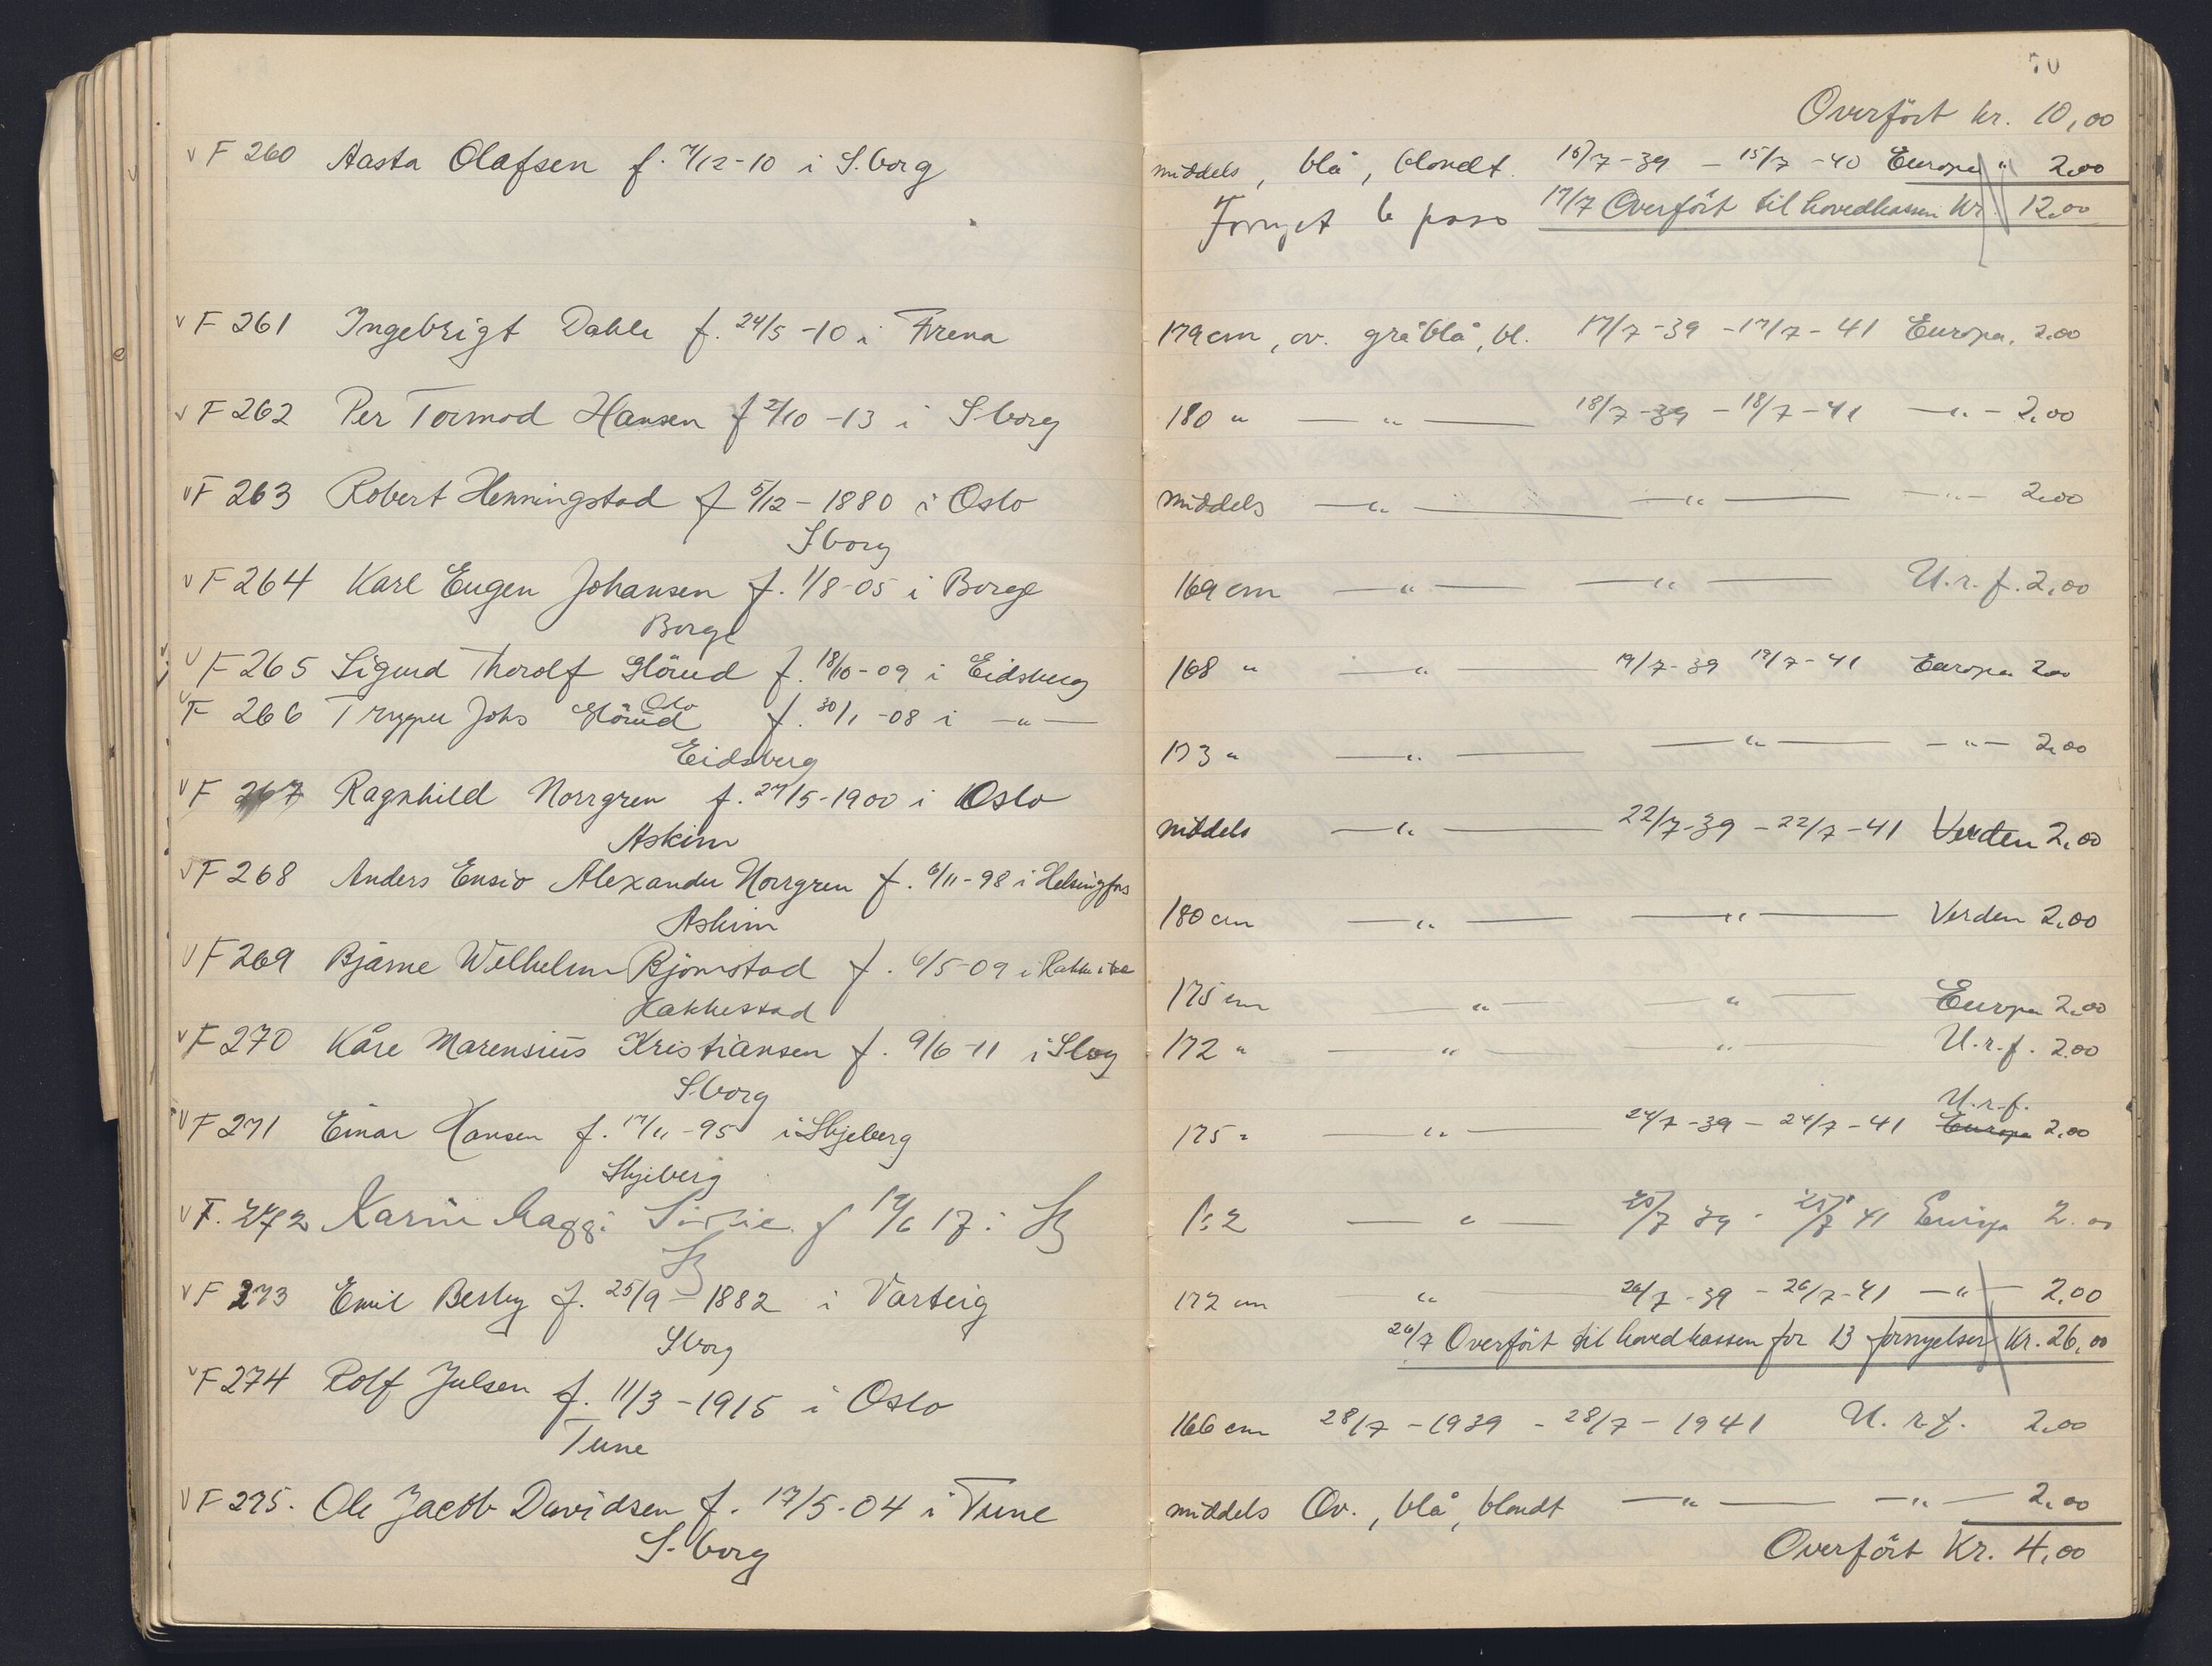 Overfört kr. 10,00
v F 260 Aasta Olafsen f. 7/12-10 i S.borg
middels, blå, blondt. 15/7-40 Europa " 2.00
Fornyet 6 pass 17/7 Overfört til hovedkassen kr. 12.00
v F 261 Ingebrigt Dahle f. 24/5 -10 i Frena
179 cm, ov. gråblå, bl. 17/7-39 - 17/7-41 Europa, 2.00
v F 262 Per Tormod Hansen f 2/10 -13 i S.borg
180 " — " — 18/7-39 - 18/7-41 — " — 2,00
v F 263 Robert Henningstad f 5/12 - 1880 i Oslo
S.borg
middels — " — — " — — " — 2.00
v F 264 Karl Eugen Johansen f. 1/8-05 i Borge
Borge
169 cm — " — — " — U.r.f. 2,00
v F 265 Sigurd Thorolf Glörud f. 18/10-09 i Eidsberg
Oslo
168 " — " — 19/7-39 19/7-41 Europa 2.00
v F 266 Johs Glörud f. 30/1 -08 i — " —
Eidsberg
173 " — " — — " — — " — 2,00
v F 267 Ragnhild Norrgren f. 27/5-1900 i Oslo
Askim
middels — " — 22/7-39 - 22/7-41 Verden 2,00
v F 268 Anders Ensio Alexander Norrgren f. 6/11-98 i Helsingfors
Askim
180 cm — " — — " — Verden 2,00
v F 269 Bjarne Wilhelm Björnstad f. 6/5-09 i
Rakkestad
175 cm — " — — " — Europa 2.00
v F 270 Kåre Marensius Kristiansen f. 9/6-11 i S.borg
S.borg
172 " — " — — " — U.r.f. 2.00
v F 271 Einar Hansen f. 17/11-95 i Skjeberg
Skjeberg
U.r.f.
175 " — " — 24/7-39 - 24/7-41 Europa 2,00
v F. 272 Karin f 19/6 17 i Sb
Sb
— " — 25/7 39 - 25/7 41 Europa 2.00
v F 273 Emil Berby f. 25/9 - 1882 i Varteig
S.borg
172 cm " — 26/7-39 - 26/7-41 — " — 2,00
26/7 Overfört til hovedkassen for 13 fornyelser Kr. 26,00
v F 274 Rolf Julsen f. 11/3 - 1915 i Oslo
Tune
166 cm 28/7 - 1939 - 28/7 - 1941 U.r.f. 2.00
v F 275. Ole Jacob Davidsen f. 17/5-04 i Tune
S.borg
middels Ov., blå, blondt — " — — " — 2.00
Overfört Kr. 4,00